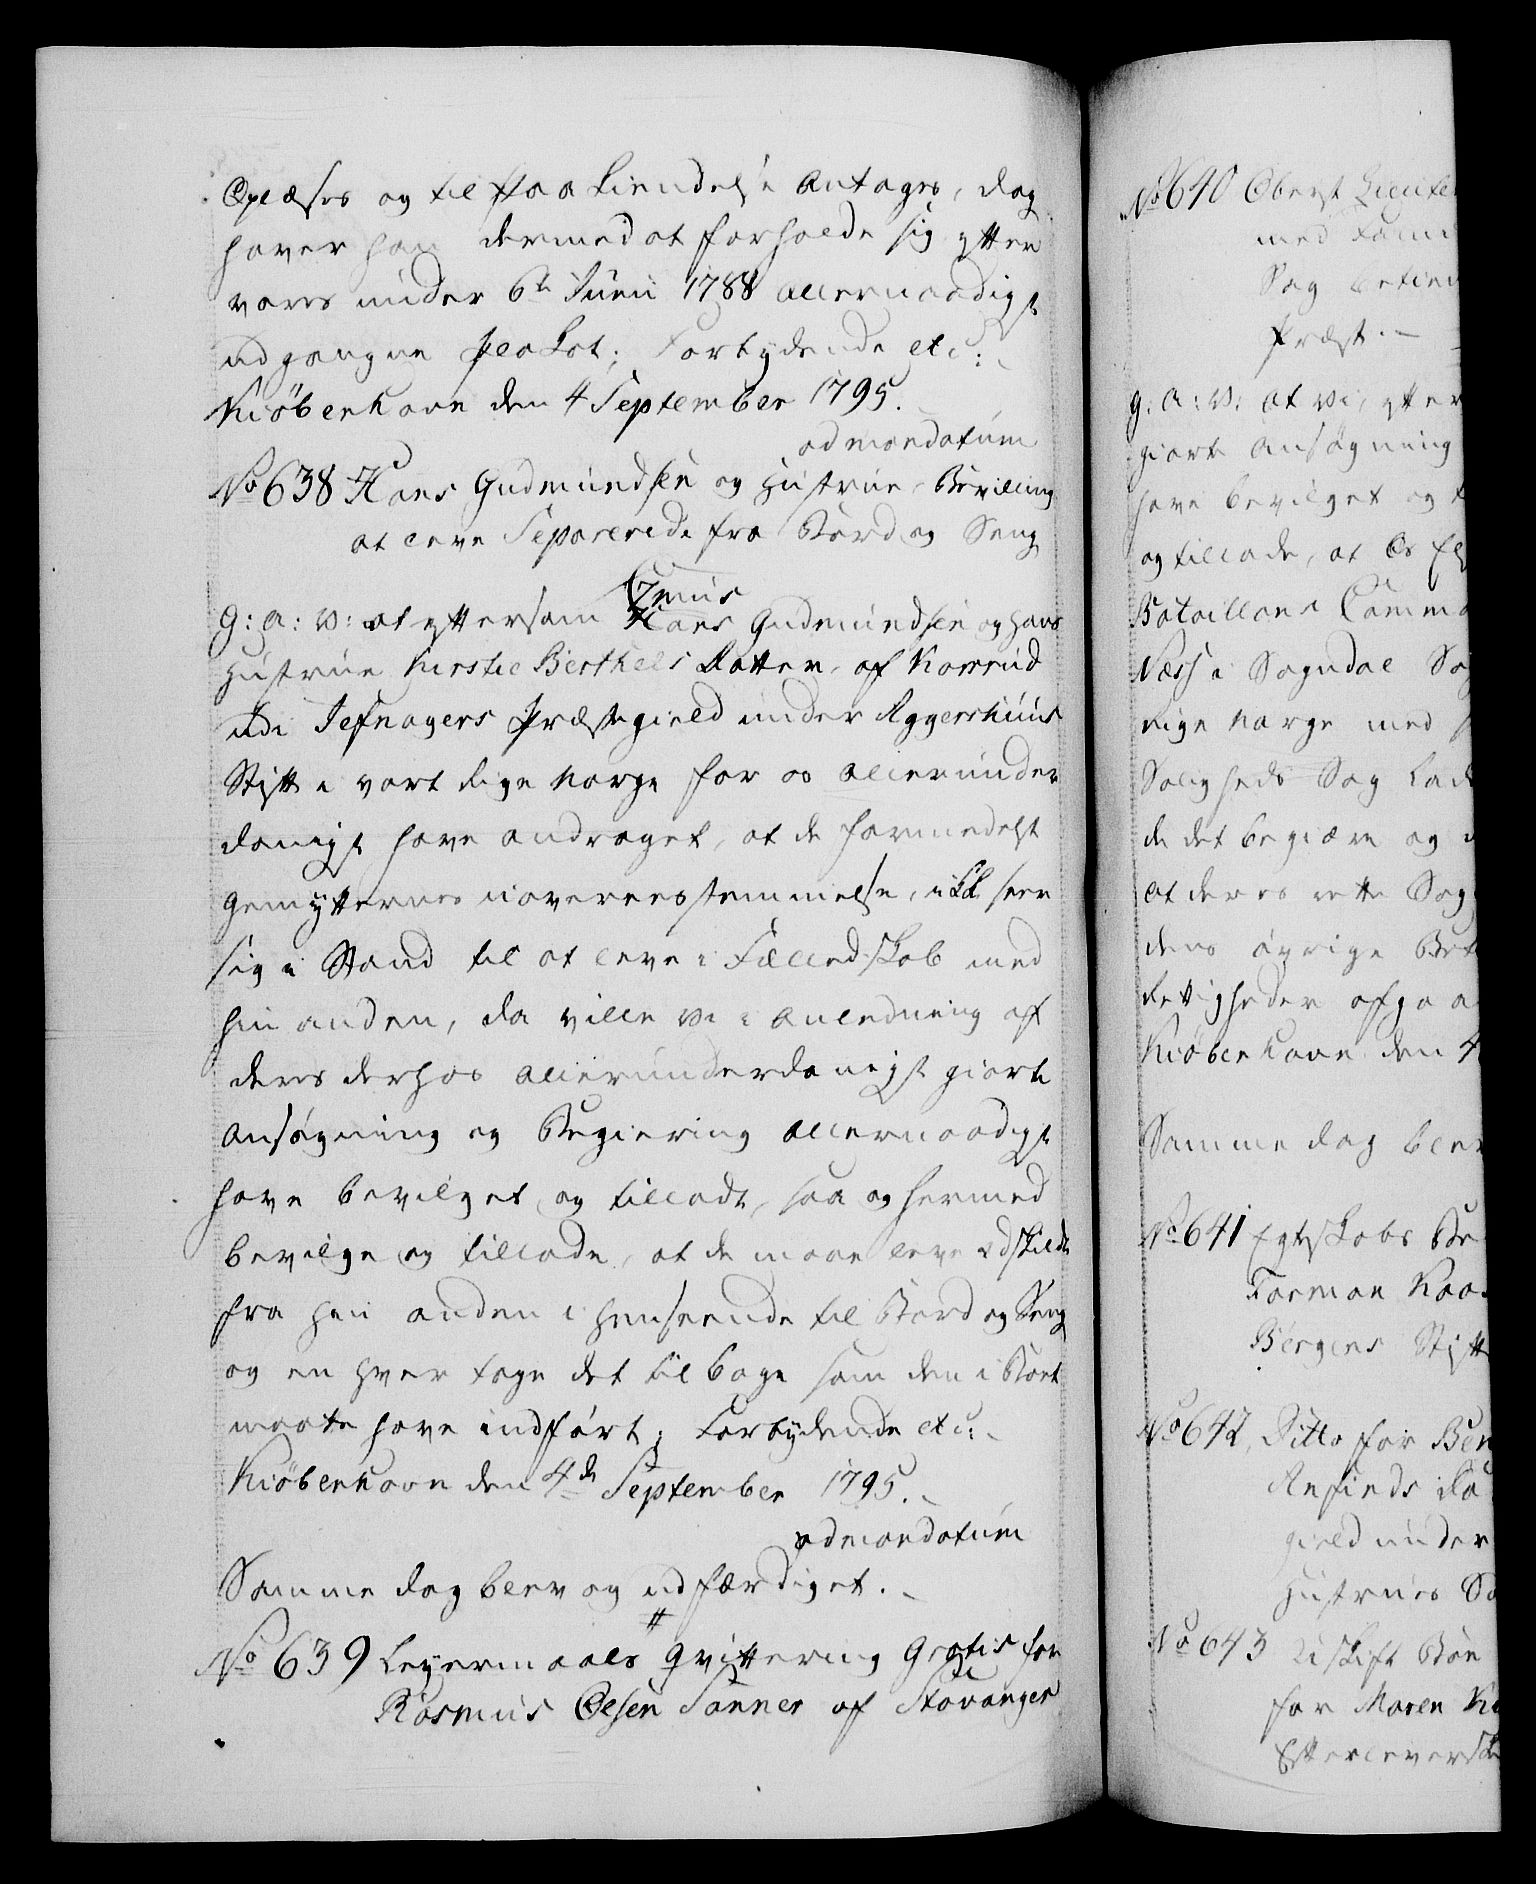 Oplæses og til Paakiendelse antages, dog
haver han dermed at forholde sig efter
vores under 6te Junii 1788 allernaadigst
udgangne Plakat; Forbydende etc:
Kiöbenhavn den 4 September 1795.
ad mandatum
No 638 Hans Gudmundsen og Hustrue, Bevilling
at leve Separerede fra Bord og Seng
G: A: V: at eftersom Hans Gudmundsen og hans
Hustrue Kirstie Berthels Datter, af Korsrud
udi Jefnagers Præstegield under Aggershuus
Stift i vort Rige Norge for os allerunder
danigst have andraget, at de formedelst
Gemytternes uoverensstemmelse, ikke seer
sig i Stand til at leve i Fælledskab med
hin anden, da ville vi i Anledning af
deres derhos allerunderdanigst giorte
Ansøgning og Begiering allernaadigst
have bevilget og tilladt, saa og hermed
bevilge og tillade, at de maae leve adskilte
fra hin anden i Henseende til Bord og Seng
og en hver tage det tilbage som den i Boet
maatte have indført; Forbydende etc:
Kiöbenhavn den 4de September 1795.
ad mandatum
Samme dag blev og udfærdiget.
No 639 Leyermaals Qvittering Gratis for
Rasmus Olsen Sanner af Stavanger
No 640 Oberst Lieute
med Fami
Sag betien
Præst.
G: A: V: at vi, efter
giorte Ansøgning
have bevilget og t
og tillade, at Os El
Batallons Comma
Næss i Sogndal So
rige Norge med
Saligheds Sag lade
de det begiære og
at deres rette Sog
dens øvrige Bet
Rettigheder afgaa
Kiöbenhavn den 4
Samme dag blev
No 641 Egteskabs Be
Torman Kaa
Bergens Stift
No 642, Ditto for Ben
gield under
Hustrues Sø
No 643 Uskift Boe
for Maren Ki
Efterleverske